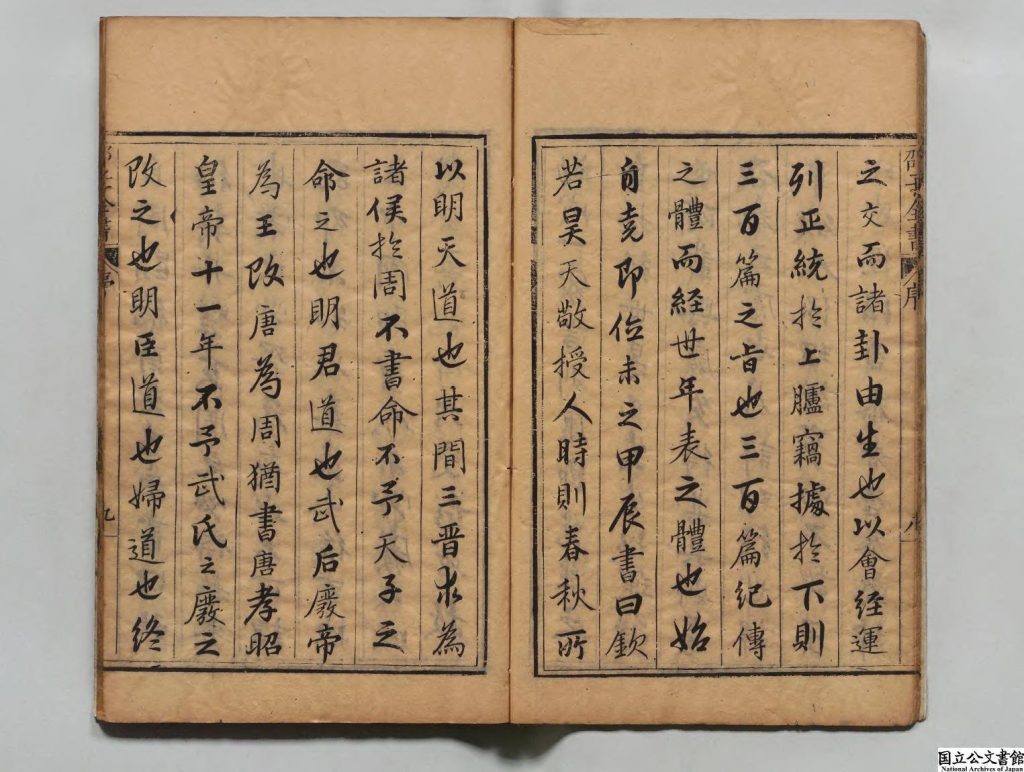 之交而諸卦由生也以會經運
列正統於上臚竊據於下則
三百篇之旨也三百篇紀傳
之體而経世年表之體也始
自堯即位未之甲辰書曰欽
若昊天敬授人時則春秋所
以明天道也其間三晋求為
諸侯於周不書命不予天子之
命之也明君道也武后廢帝
為王改唐為周猶書唐孝昭
皇帝十一年不予武氏之廢之
改之也明臣道也婦道也終
邵子全書
序
九
国立公文書館
National Archives of Japan